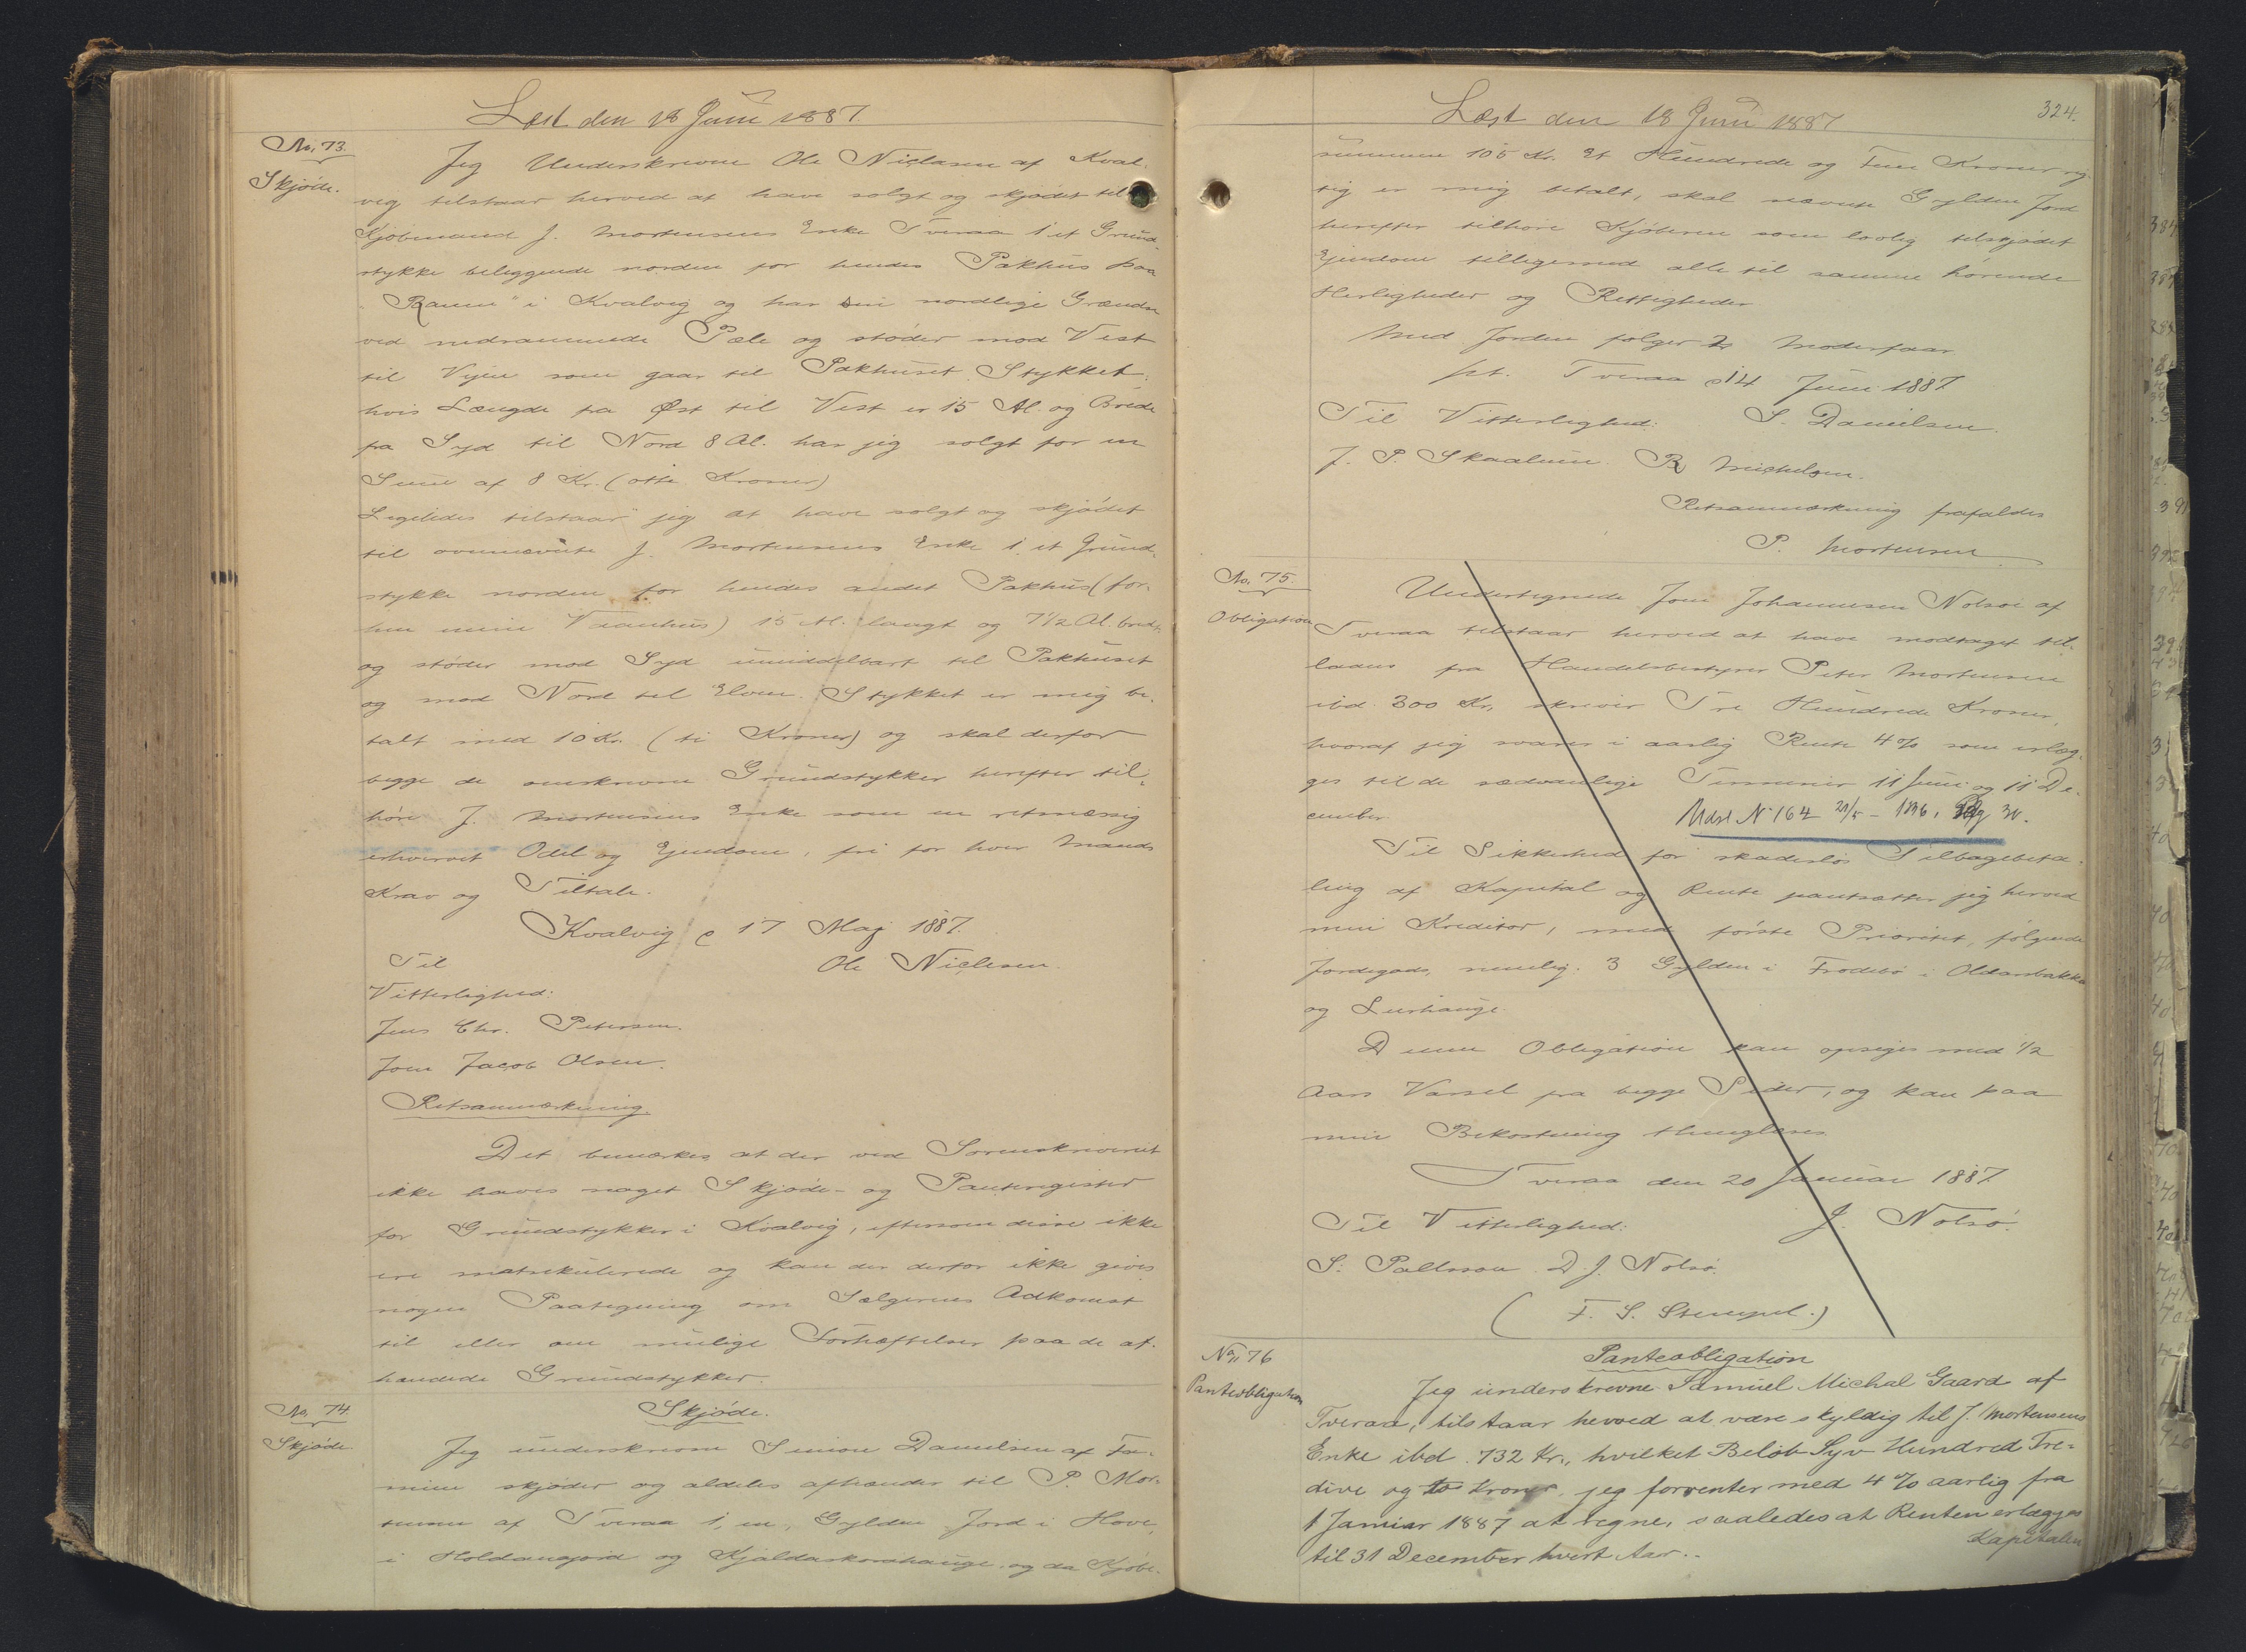 Læst den 18 Juni 1887.
No. 73.
Skjøde.
Jeg Underskrevne Ole Niclasen af Kval-
vig tilstaar herved at have solgt og skjødet til
Kjøbmand J. Mortensens Enke Tveraa 1 et Grund-
stykke beliggende norden for hendes Pakhus paa
"Ranun" i Kvalvig og har sin nordlige Grændse
ved nedrammede Pæle og støder mod Vest
til Vejen som gaar til Pakhuset. Stykket,
hvis Længde fra Øst til Vest er 15 Al. og Brede
fra Syd til Nord 8 Al. har jeg solgt for en
Sum af 8 Kr. (otte Kroner)
Ligeledes tilstaar jeg at have solgt og skjødet
til ovennævnte J. Mortensens Enke 1 et Grund-
stykke norden for hendes andet Pakhus (for-
hen mine Vaanhus) 15 Al. langt og 7 1/2 Al. bredt
og støder mod Syd umiddelbart til Pakhuset
og mod Nord til Elven. Stykket er mig be-
talt med 10 Kr. (ti Kroner) og skal derfor
begge de omskrevne Grundstykker herefter til-
høre J. Mortensens Enke som en retmæssig
erhvervet Odel og Ejendom, fri for hver Mands
Krav og Tiltale.
Kvalvig d 17 Maj 1887.
Til Ole Niclesen.
Vitterlighed:
Jens Chr. Petersen.
Joen Jacob Olsen.
Retsanmærkning.
Det bemærkes at der ved Sorenskriveriet
ikke haves noget Skjøde- og Panteregister
for Grundstykker i Kvalvig, eftersom disse ikke
ere matrikulerede og kan der derfor ikke gives
nogen Paategning om Sælgerens Adkomst
til eller om mulige Forhæftelser paa de af-
hændede Grundstykker.
No. 74.
Skjøde.
Skjøde.
Jeg underskrevne Simon Danielsen af Fa-
mien skjøder og aldeles afhænder til P. Mor-
tensen af Tveraa 1, en, Gylden Jord i Hove,
i Holdansjord og Kjaldaskorahauge, og da Kjøbe-
Læst den 18 Juni 1887
324.
summen 105 Kr. Et Hundrede og Fem Kroner rig-
tig er mig betalt, skal nævnte Gylden Jord
herefter tilhøre Kjøberen som lovlig tilskjødet
Ejendom tilligemed alle til samme hørende
Herligheder og Rettigheder
Med Jorden følger 2 Moderfaar
pt. Tveraa d 14 Juni 1887
Til Vitterlighed: S. Danielsen.
J. P. Skaalum R Michelsen.
Retsanmærkning frafaldes
P. Mortensen
No. 75.
Obligation
Undertegnede Joen Johannesen Nolsøe af
Tveraa tilstaar herved at have modtaget til-
laans fra Handelsbestyrer Peter Mortensen
ibd. 300 Kr. skriver Tre Hundrede Kroner,
hvoraf jeg svarer i aarlig Rente 4% som erlæg-
ges til de sædvanlige Terminer 11 Juni og 11 De-
cember.
Udsl. N 164 21/5 - 1896, Pag 30.
Til Sikkerhed for skadesløs Tilbagebeta-
ling af Kapital og Rente pantsætter jeg herved
min Kreditor, med første Prioritet, følgende
Jordegods, nemlig. 3 Gylden i Frodebø i Oldarsbakke
og Lurhauge.
Denne Obligation kan opsiges med 1/2
Aars Varsel fra begge Sider, og kan paa
min Bekostning thinglæses.
Tveraa den 20 Januar 1887.
Til Vitterlighed: J. Nolsø.
S. Pallsson D. J. Nolsø.
( F. S. Stempel. )
No. 76
Panteobligation
Panteobligation
Jeg underskrevne Samuel Michal Gaard af
Tveraa, tilstaar herved at være skyldig til J. Mortensens
Enke ibd. 732 Kr., hvilket Beløb Syv Hundred Tre-
dive og to Kroner, jeg forrenter med 4% aarlig fra
1 Januar 1887 at regne, saaledes at Renten erlægges
til 31 December hvert Aar..
Kapitalen